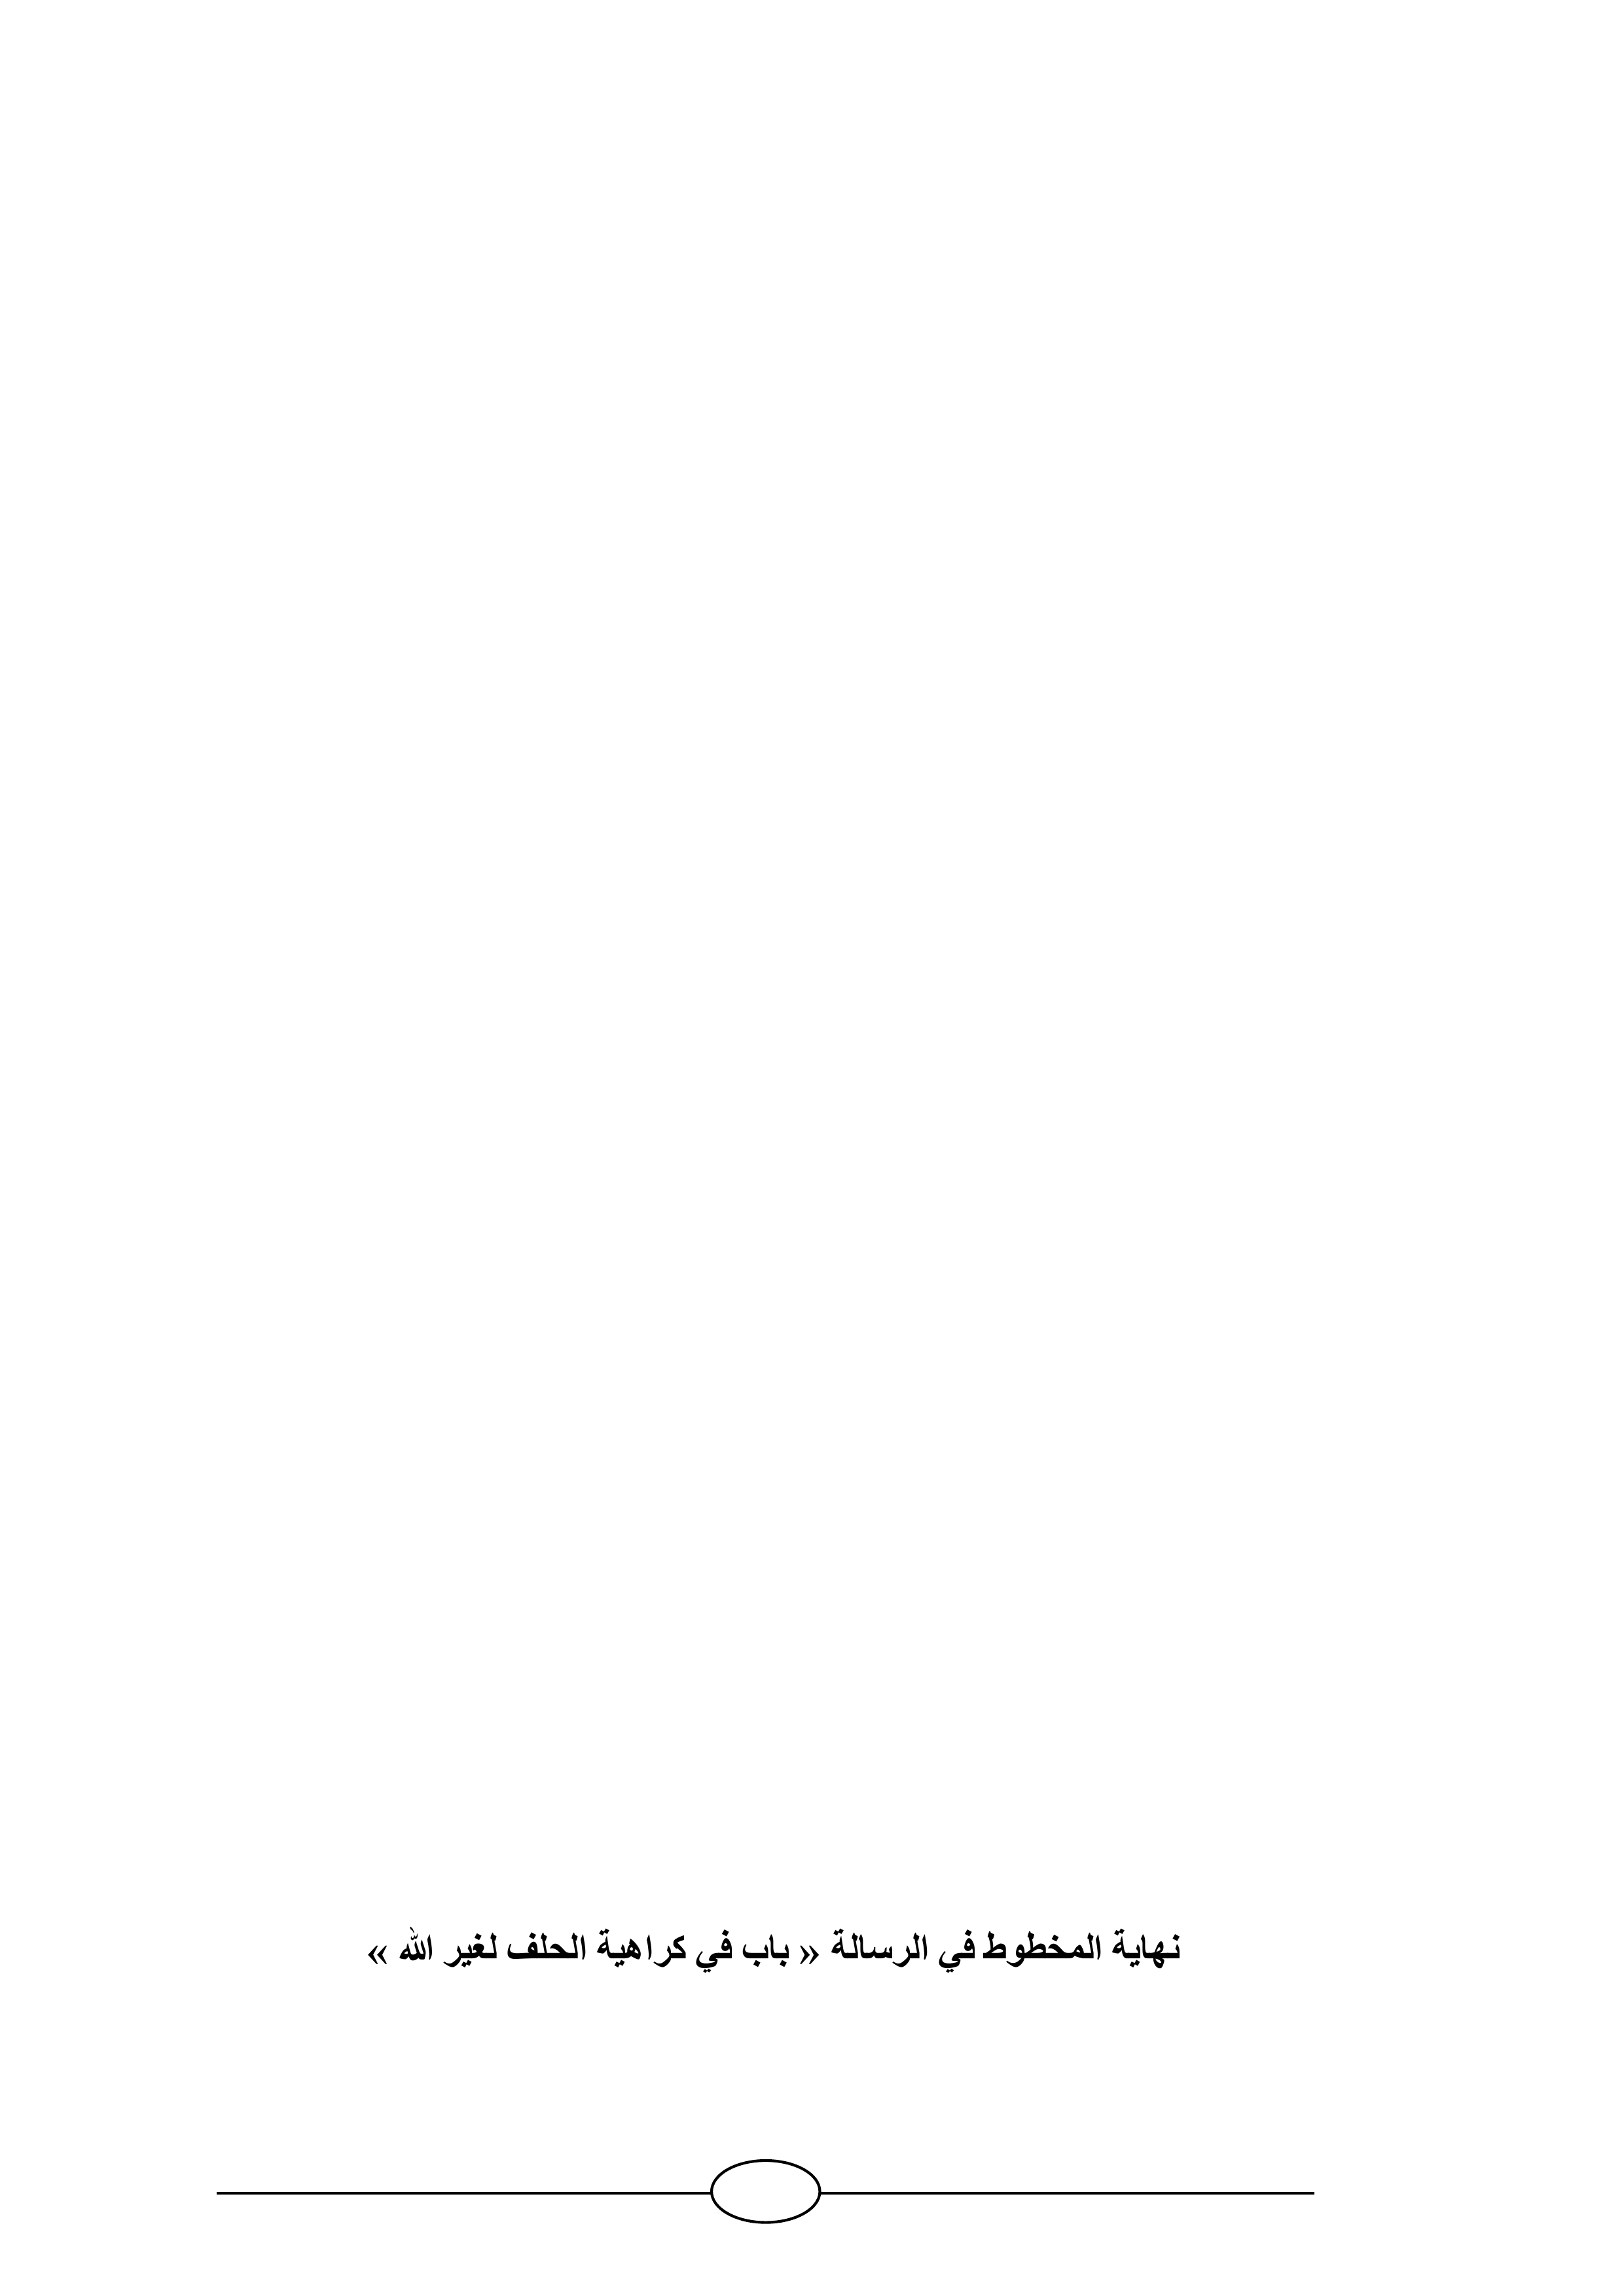 نهاية المخطوط في الرسالة « باب في كراهية الحلف لغير الله »